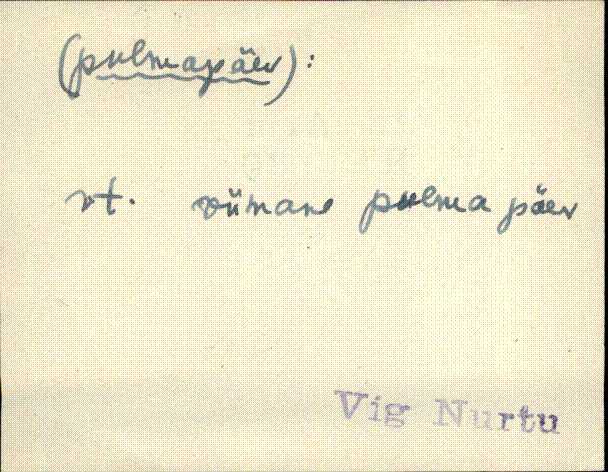 (pulmapäev):
vt. viimane pulma päev
Vig Nurtu